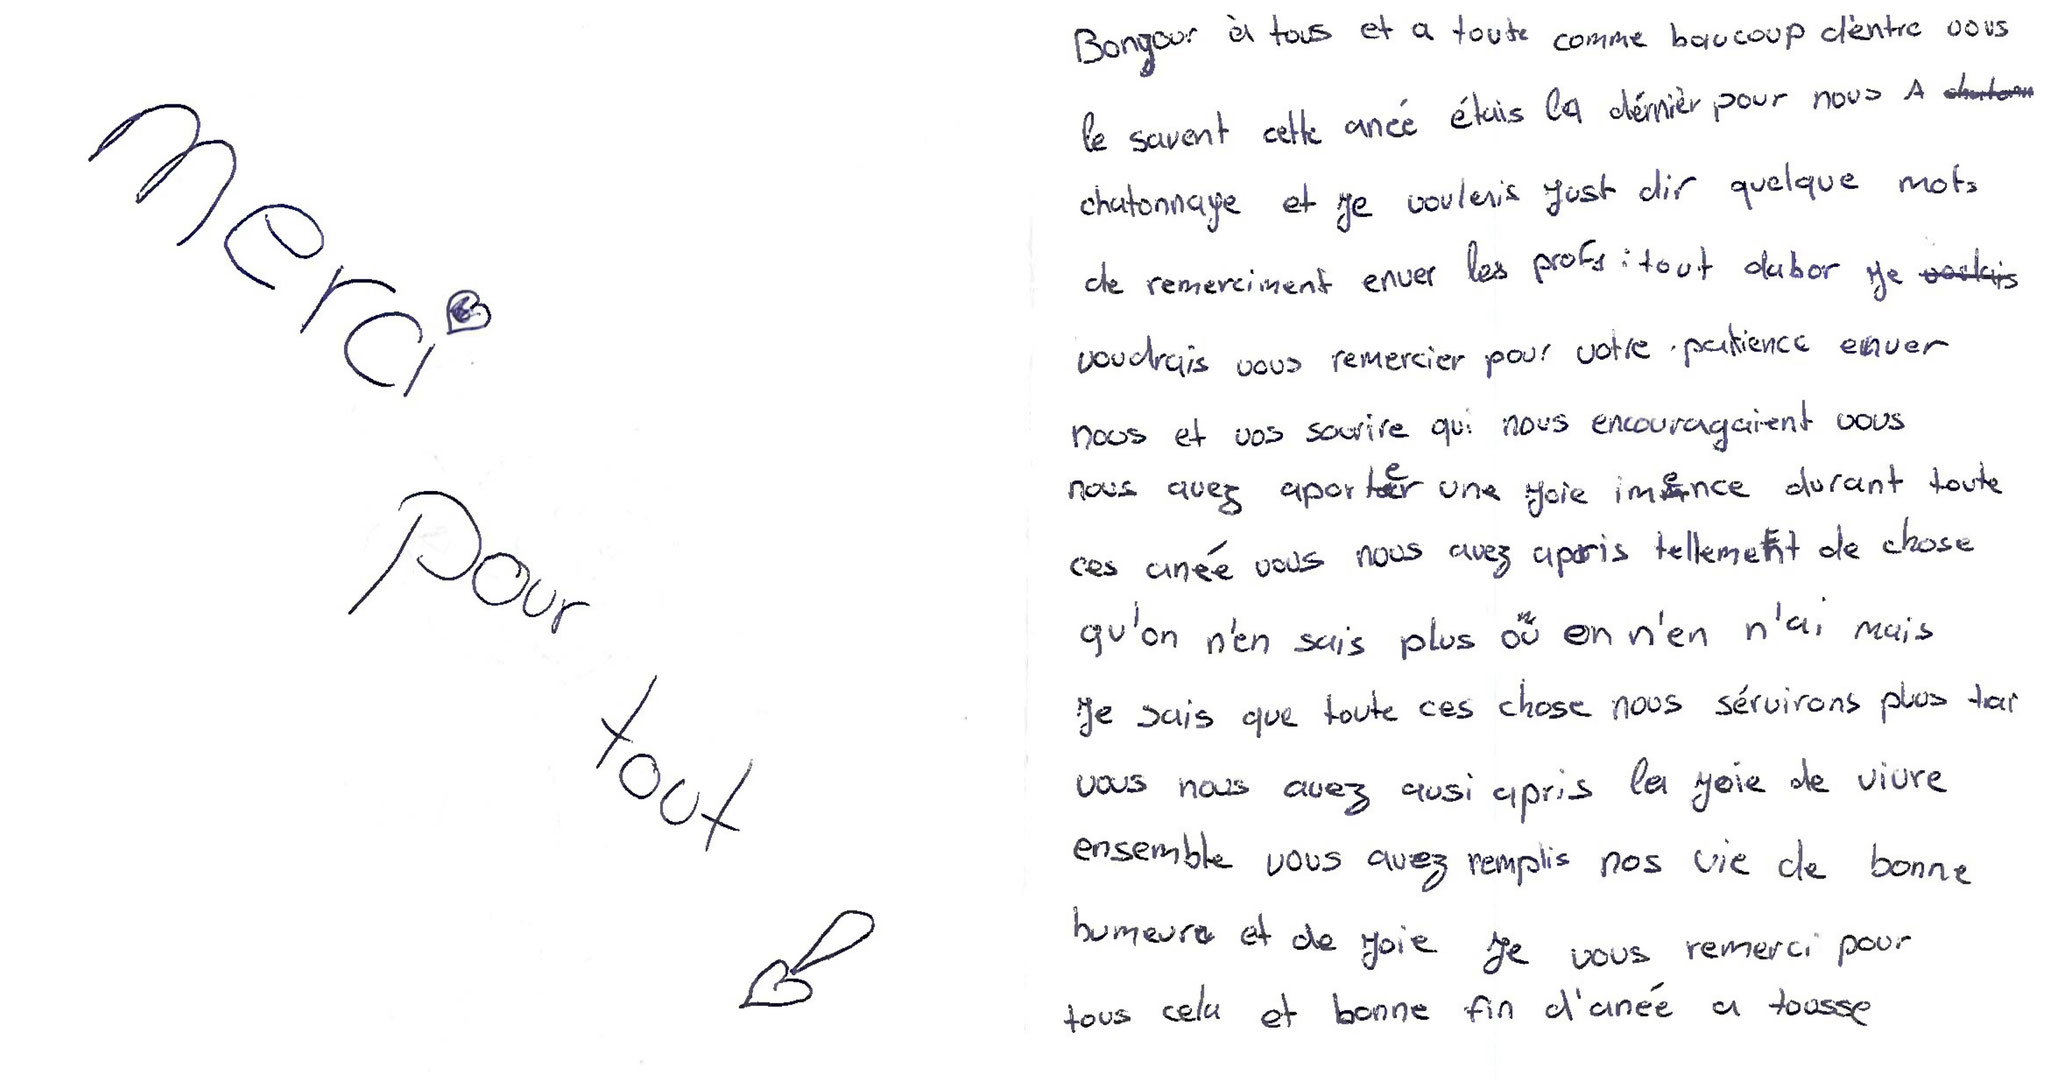 merci
pour
tout
!
Bongour à tous et a toute comme baucoup d'entre vous
le savent cette aneé étais la dérnièr pour nous A
chatonnaye et je voulais just dir quelque mots
de remerciment enver les profs : tout dabor je voulais
voudrais vous remercier pour votre patience enver
nous et vos sourire qui nous encouragaient vous
nous avez aporter une joie imence durant toute
ces aneé vous nous avez apris tellement de chose
qu'on n'en sais plus où en n'en n'ai mais
je sais que toute ces chose nous sérvirons plus tar
vous nous avez ausi apris la joie de vivre
ensemble vous avez remplis nos vie de bonne
humeure et de joie je vous remerci pour
tous cela et bonne fin d'aneé a tousse